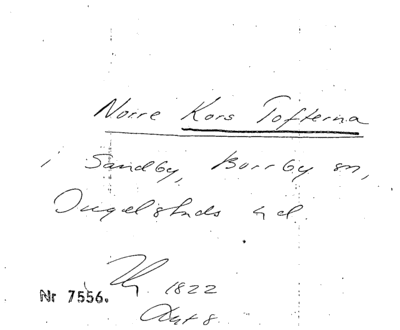 Norre Kors Tofterna
i Sandby, Borrby sn,
Ingelstads hd.
1822
Nr 7556.
Akt 8